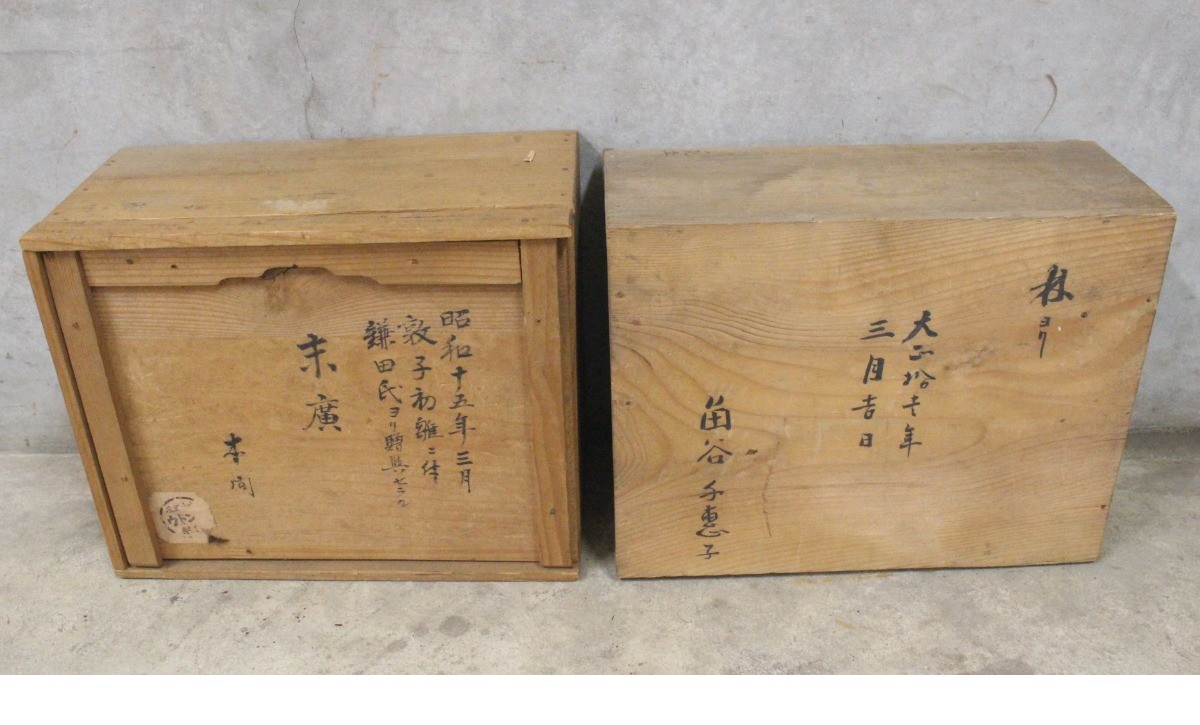 昭和十五年三月
敦子初雛ニ件
鎌田氏ヨリ贈與セラル
末廣
ヨリ
大正拾壱年
三月吉日
谷千恵子